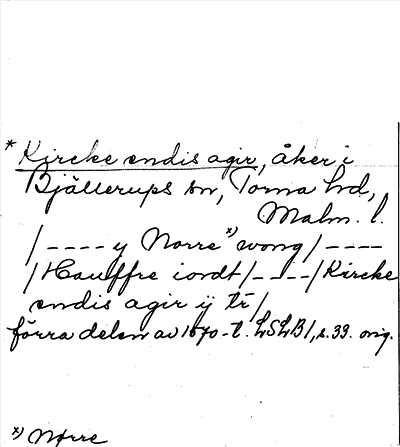 * Kircke endis agir, åker i
Bjällerups sn, Torna hd,
Malm. l.
/ - - - - y Norre x) wong / - - - -
/ Hauffre iordt / - - - - / Kircke
endis agir ij tr /
förra delen av 1670-t. LSLB 1, s. 39. orig.
x) Nørre